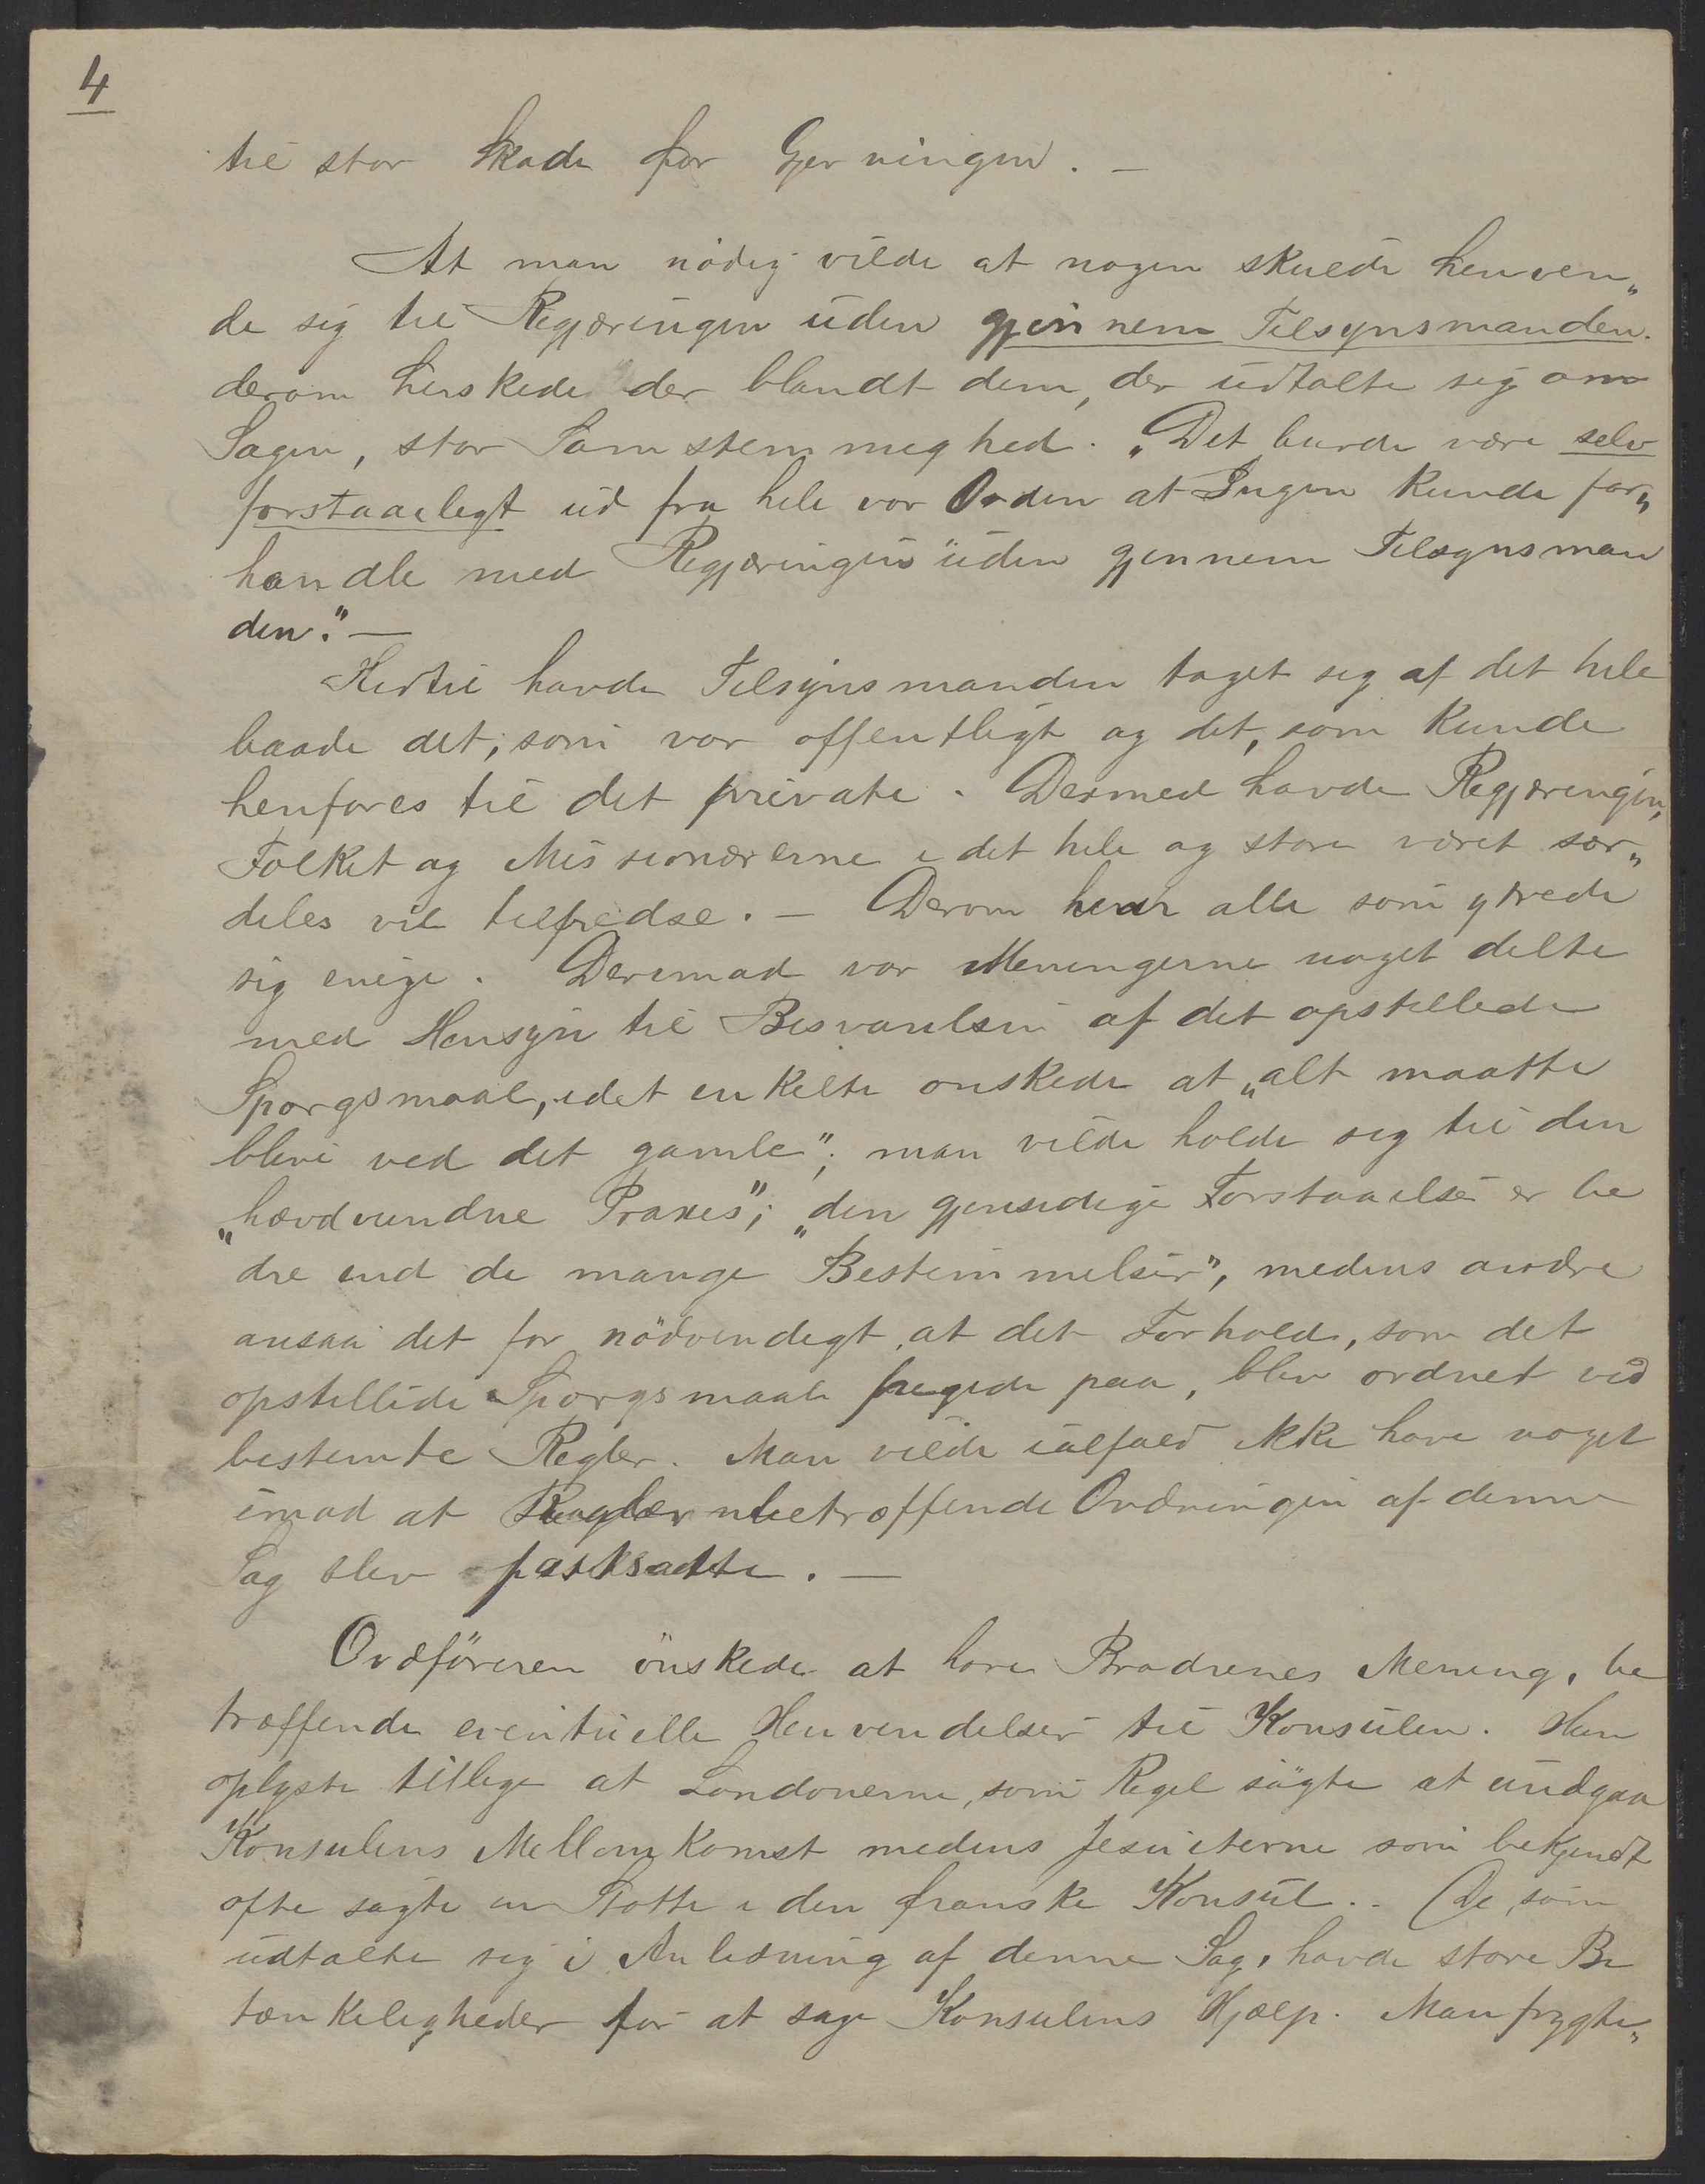 4
til stor Skade for Gjerningen. —
At man nödig vilde at nogen skulde henven„
de sig til Regjæringen uden gjennem Tilsynsmanden.
derom herskede der blandt dem, der udtalte sig om
Sagen, stor Samstemmighed. „Det burde være selv
forstaaeligt ud fra hele vor Orden at Ingen kunde for„
handle med Regjæringen uden gjennem Tilsynsman
den." —
Hertil havde Tilsynsmanden taget sig af det hele
baade det, som var offentligt og det, som kunde
henføres til det private. Dermed havde Regjæringen,
Folket og Missionærerne i det hele og store været sær„
deles vel tilfredse. — Derom var alle som ytrede
sig enige. Derimod var Meningerne noget delte
med Hensyn til Besvarelsen af det opstillede
Spørgsmaal, idet enkelte ønskede at „alt maatte
blive ved det gamle"; man vilde holde sig til den
„hævdvundne Praxis"; „den gjensidige Forstaaelse er be
dre end de mange Bestemmelser", medens andre
ansaa det for nödvendigt at det Forhold, som det
opstillede Spørgsmaal pegede paa, blev ordnet ved
bestemte Regler. Man vilde ialfald ikke have noget
imod at Regler betræffende Ordningen af denne
Sag blev fastsatte. —
Ordföreren önskede at høre Brødrenes Mening, be
træffende eventuelle Henvendelser til Konsulen. Han
oplyste tillige at Londonerne, som Regel sögte at undgaa
Konsulens Mellomkomst medens Jesuiterne som bekjendt
ofte søgte en Støtte i den franske Konsul. De, som
udtalte sig i Anledning af denne Sag, havde store Be
tænkeligheder for at søge Konsulens Hjælp. Man frygte„